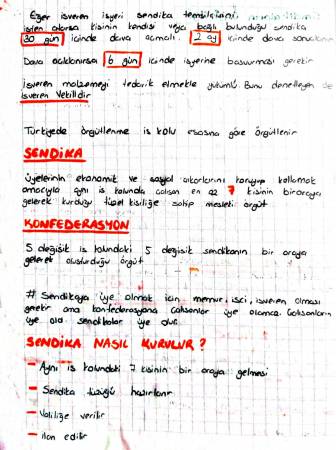 Eğer işveren işyeri sendika temsilcisini
işten atarsa kişinin kendisi veya bağlı bulunduğu sendika
30 gün içinde dava açmalı. 2 ay içinde dava
Dava açıklanırsa 6 gün içinde işyerine başvurması gerekir
İşveran malzemeyi tedarik etmekle yükümlü Bunu denetleyen de
işveren Vekilidir
Türkiyede örgütlenme iş kolu esasına göre örgütlenir
SENDİKA
üyelerinin ekonomik ve sosyal çıkarlarını koruyup kollamak
amacıyla aynı iş kolunda çalışan en az 7 kişinin biraraya
gelerek kurduğu tüzel kişiliğe sahip mesleki örgüt
KONFEDERASYON
5 değişik iş kolundaki 5 değişik sendikanın bir araya
gelerek oluşturduğu örgüt
# Sendikaya üye olmak için memur, işçi, işveren olması
gerekir ama konfederasyona çalışanlar üye olamaz. Çalışanların
üye old. sendikalar üye olur
SENDİKA NASIL KURULUR?
- Aynı iş kolundaki 7 kişinin bir araya gelmesi
- Sendika tüzüğü hazırlanır
- Valiliğe verilir
- ilan edilir